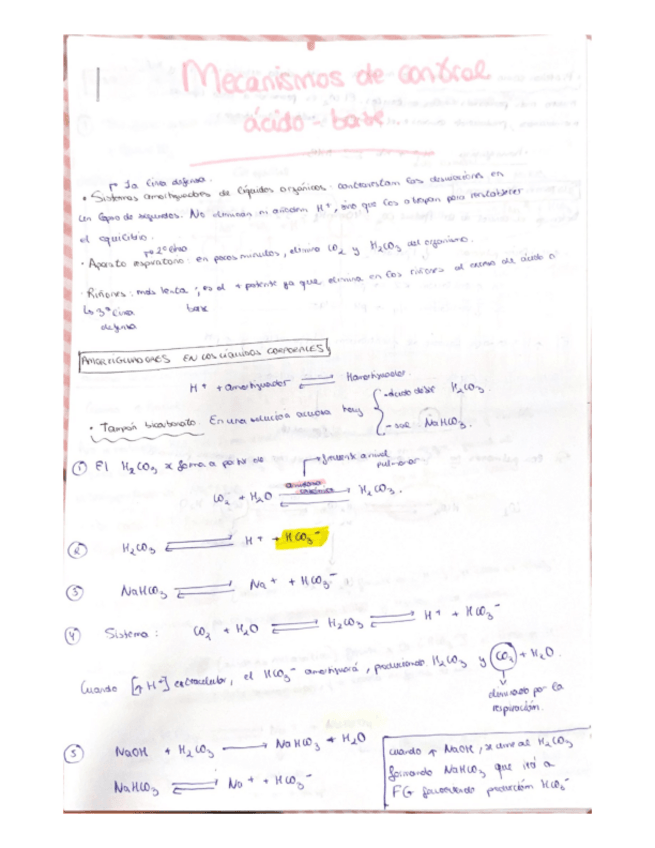 Mecanismos de control
ácido-base
→ 1a línea defensa.
• Sistemas amortiguadores de líquidos orgánicos: contrarrestan las desviaciones en
un lapso de segundos. No eliminan ni añaden H⁺, sino que los atrapan para restablecer
el equilibrio.
→ 2ª línea
· Aparato respiratorio: en pocos minutos, elimina CO₂ y H₂CO₃ del organismo.
· Riñones: más lenta; es el + potente ya que elimina en los riñones el exceso de ácido o
base
↳ 3ª línea
defensa
AMORTIGUADORES EN LOS LÍQUIDOS CORPORALES
H⁺ + amortiguador ⇌ Hamortiguador.
• Tampón bicarbonato. En una solución acuosa hay { - ácido débil H₂CO₃.
- sal NaHCO₃.
① El H₂CO₃ se forma a partir de
→ frecuente a nivel
pulmonar
anhidrasa
carbónica
CO₂ + H₂O ⇌ H₂CO₃.
② H₂CO₃ ⇌ H⁺ + HCO₃⁻
③ NaHCO₃ ⇌ Na⁺ + HCO₃⁻
④ Sistema: CO₂ + H₂O ⇌ H₂CO₃ ⇌ H⁺ + HCO₃⁻
Cuando [↑ H⁺] extracelular, el HCO₃⁻ amortiguará, produciendo H₂CO₃ y CO₂ + H₂O.
↓
eliminado por la
respiración.
⑤ NaOH + H₂CO₃ → NaHCO₃ + H₂O
NaHCO₃ ⇌ Na⁺ + HCO₃⁻
cuando ↑ NaOH, se une al H₂CO₃
formando NaHCO₃ que irá a
FG favoreciendo producción HCO₃⁻